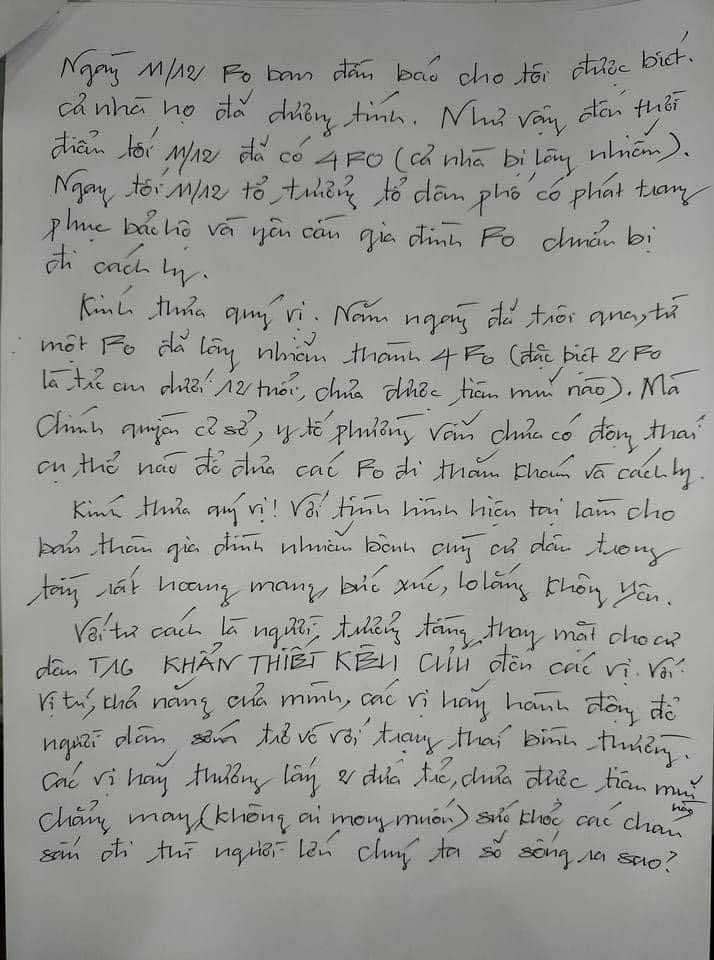 Ngày 11/12 F0 ban đầu báo cho tôi được biết.
cả nhà họ đã dương tính. Như vậy đến thời
điểm tối 11/12 đã có 4 F0 (cả nhà bị lây nhiễm).
Ngay tối 11/12 tổ trưởng tổ dân phố có phát trang
phục bảo hộ và yêu cầu gia đình F0 chuẩn bị
đi cách ly.
Kính thưa quý vị. Năm ngày đã trôi qua, từ
một F0 đã lây nhiễm thành 4 F0 (đặc biệt 2 F0
là trẻ em dưới 12 tuổi, chưa được tiêm mũi nào). Mà
Chính quyền cơ sở, y tế phường vẫn chưa có động thái
cụ thể nào để đưa các F0 đi thăm khám và cách ly.
Kính thưa quý vị! Với tình hình hiện tại làm cho
bản thân gia đình nhiễm bệnh cùng cư dân trong
tầng rất hoang mang, bức xúc, lo lắng không yên.
Với tư cách là người trưởng tầng, thay mặt cho cư
dân T16 KHẨN THIẾT KÊU CỨU đến các vị. Với
vị trí, khả năng của mình, các vị hãy hành động để
người dân sớm trở về với trạng thái bình thường.
Các vị hãy thương lấy 2 đứa trẻ, chưa được tiêm mũi nào
chẳng may (không ai mong muốn) sức khỏe các cháu
xấu đi thì người lớn chúng ta sẽ sống ra sao?